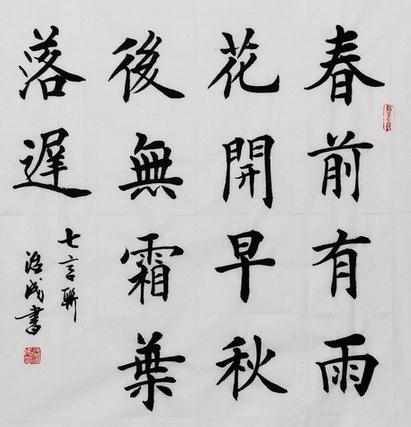 春前有雨
花開早秋
後無霜葉
落遲
七言聯
成書